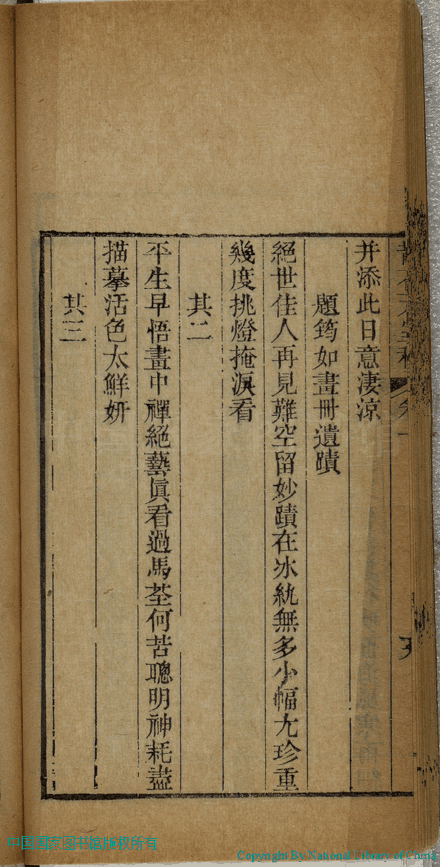 并添此日意淒涼
題筠如畫冊遺蹟
絕世佳人再見難空留妙蹟在冰紈無多少幅尢珍重
幾度挑燈掩淚看
其二
平生早悟畫中禪絕藝眞看過馬荃何苦聰明神耗盡
描摹活色太鮮妍
其三
中国国家图书馆版权所有
Copyright By National Library of China